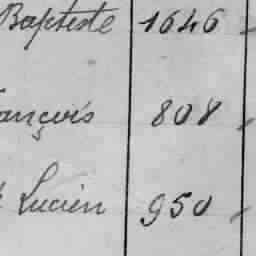 Baptiste 1646
ançois 808
Lucien 950